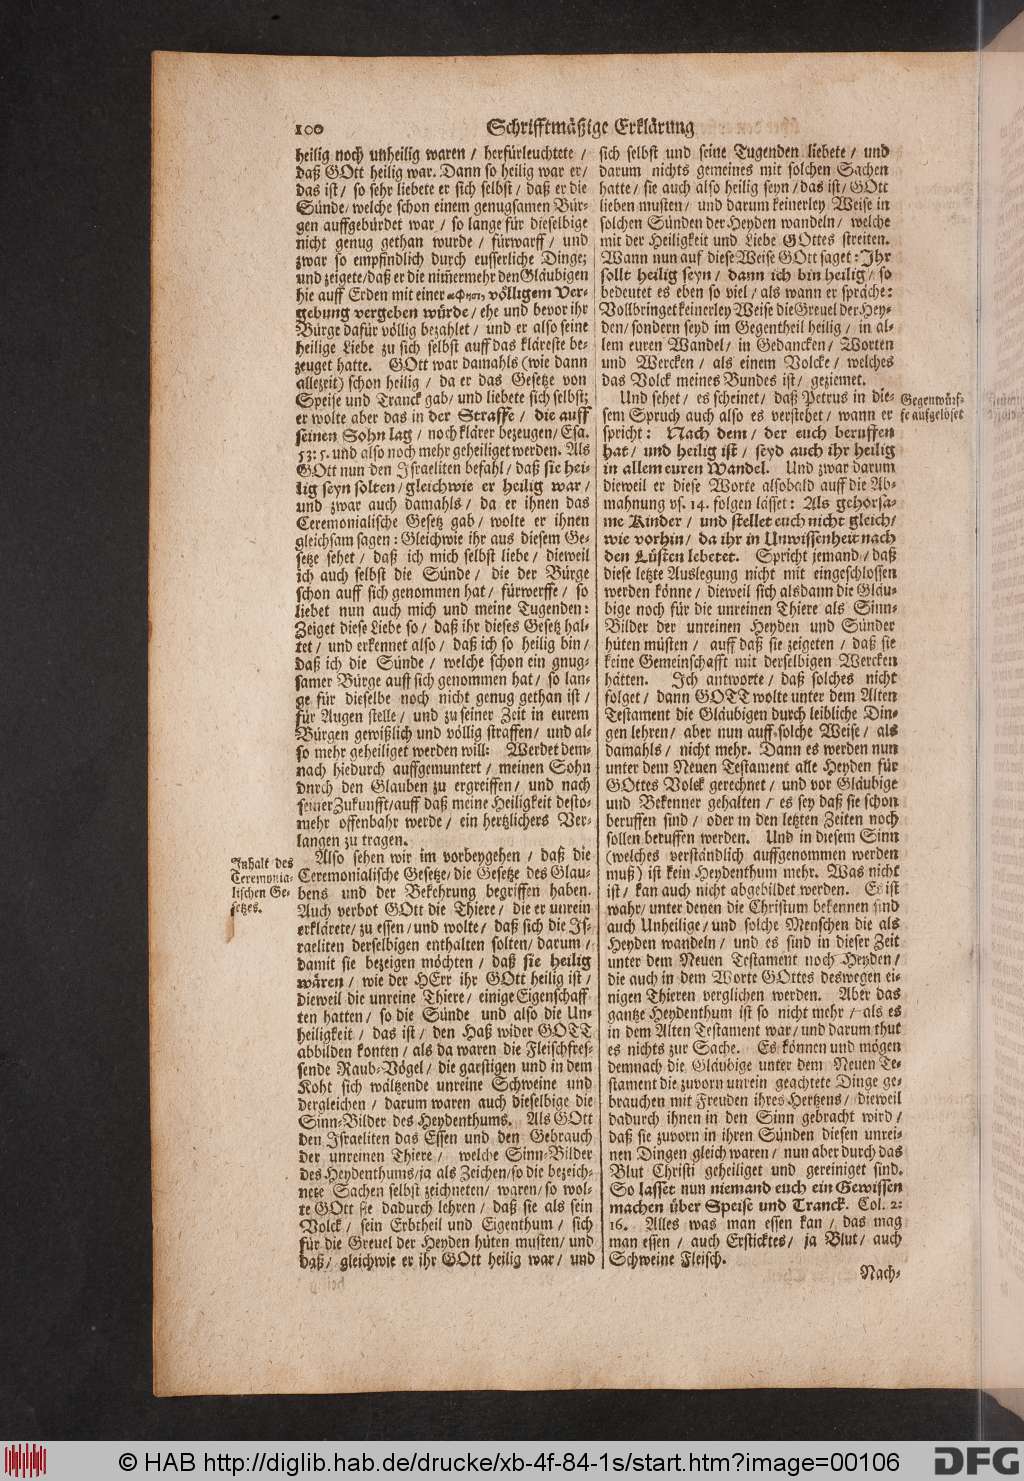 100
Schrifftmäßige Erklärung
heilig noch unheilig waren / herfürleuchtete /
daß GOtt heilig war. Dann so heilig war er /
das ist / so sehr liebete er sich selbst / daß er die
Sünde / welche schon einem genugsamen Bür-
gen auffgebürdet war / so lange für dieselbige
nicht genug gethan wurde / fürwarff / und
zwar so empfindlich durch eusserliche Dinge;
und zeigete / daß er die nim̃ermehr den Gläubigen
hie auff Erden mit einer völligem Ver-
gebung vergeben würde / ehe und bevor ihr
Bürge dafür völlig bezahlet / und er also seine
heilige Liebe zu sich selbst auff das kläreste be-
zeuget hatte. GOtt war damahls (wie dann
allezeit) schon heilig / da er das Gesetze von
Speise und Tranck gab / und liebete sich selbst;
er wolte aber das in der Straffe / die auff
seinen Sohn lag / noch klärer bezeugen / Esa.
53: 5. und also noch mehr geheiliget werden. Als
GOtt nun den Israeliten befahl / daß sie hei-
lig seyn solten / gleichwie er heilig war /
und zwar auch damahls / da er ihnen das
Ceremonialische Gesetz gab / wolte er ihnen
gleichsam sagen: Gleichwie ihr aus diesem Ge-
setze sehet / daß ich mich selbst liebe / dieweil
ich auch selbst die Sünde / die der Bürge
schon auff sich genommen hat / fürwerffe / so
liebet nun auch mich und meine Tugenden:
Zeiget diese Liebe so / daß ihr dieses Gesetz hal-
tet / und erkennet also / daß ich so heilig bin /
daß ich die Sünde / welche schon ein gnug-
samer Bürge auff sich genommen hat / so lan-
ge für dieselbe noch nicht genug gethan ist /
für Augen stelle / und zu seiner Zeit in eurem
Bürgen gewißlich und völlig straffen / und al-
so mehr geheiliget werden will: Werdet dem-
nach hiedurch auffgemuntert / meinen Sohn
dnrch den Glauben zu ergreiffen / und nach
seiner Zukunfft / auff daß meine Heiligkeit desto-
mehr offenbahr werde / ein hertzlichers Ver-
langen zu tragen.
Inhalt des
Ceremonia-
lischen Ge-
setzes.
Also sehen wir im vorbeygehen / daß die
Ceremonialische Gesetze / die Gesetze des Glau-
bens und der Bekehrung begriffen haben.
Auch verbot GOtt die Thiere / die er unrein
erklärete / zu essen / und wolte / daß sich die Is-
raeliten derselbigen enthalten solten / darum /
damit sie bezeigen möchten / daß sie heilig
wären / wie der HErr ihr GOtt heilig ist /
dieweil die unreine Thiere / einige Eigenschaff
ten hatten / so die Sünde und also die Un-
heiligkeit / das ist / den Haß wider GOTT
abbilden konten / als da waren die Fleischfres-
sende Raub-Vögel / die garstigen und in dem
Koht sich wältzende unreine Schweine und
dergleichen / darum waren auch dieselbige die
Sinn-Bilder des Heydenthums. Als GOtt
den Israeliten das Essen und den Gebrauch
der unreinen Thiere / welche Sinn-Bilder
des Heydenthums / ja als Zeichen / so die bezeich-
nete Sachen selbst zeichneten / waren / so wol-
te GOtt sie dadurch lehren / daß sie als sein
Volck / sein Erbtheil und Eigenthum / sich
für die Greuel der Heyden hüten musten / und
daß / gleichwie er ihr GOtt heilig war / und
sich selbst und seine Tugenden liebete / und
darum nichts gemeines mit solchen Sachen
hatte / sie auch also heilig seyn / das ist / GOtt
lieben musten / und darum keinerley Weise in
solchen Sünden der Heyden wandeln / welche
mit der Heiligkeit und Liebe GOttes streiten.
Wann nun auf diese Weise GOtt saget: Ihr
sollt heilig seyn / dann ich bin heilig / so
bedeutet es eben so viel / als wann er spräche:
Vollbringet keinerley Weise die Greuel der Hey-
den / sondern seyd im Gegentheil heilig / in al-
lem euren Wandel / in Gedancken / Worten
und Wercken / als einem Volcke / welches
das Volck meines Bundes ist / geziemet.
Und sehet / es scheinet / daß Petrus in die-
sem Spruch auch also es verstehet / wann er
spricht: Nach dem / der euch beruffen
hat / und heilig ist / seyd auch ihr heilig
in allem euren Wandel. Und zwar darum
dieweil er diese Worte alsobald auff die Ab-
mahnung vs. 14. folgen lässet: Als gehorsa-
me Kinder / und stellet euch nicht gleich /
wie vorhin / da ihr in Unwissenheit nach
den Lüsten lebetet. Spricht jemand / daß
diese letzte Auslegung nicht mit eingeschlossen
werden könne / dieweil sich alsdann die Gläu-
bige noch für die unreinen Thiere als Sinn-
Bilder der unreinen Heyden und Sünder
hüten müsten / auff daß sie zeigeten / daß sie
keine Gemeinschafft mit derselbigen Wercken
hätten. Ich antworte / daß solches nicht
folget / dann GOTT wolte unter dem Alten
Testament die Gläubigen durch leibliche Din-
gen lehren / aber nun auff solche Weise / als
damahls / nicht mehr. Dann es werden nun
unter dem Neuen Testament alle Heyden für
GOttes Volck gerechnet / und vor Gläubige
und Bekenner gehalten / es sey daß sie schon
beruffen sind / oder in den letzten Zeiten noch
sollen beruffen werden. Und in diesem Sinn
(welches verständlich auffgenommen werden
muß) ist kein Heydenthum mehr. Was nicht
ist / kan auch nicht abgebildet werden. Es ist
wahr / unter denen die Christum bekennen sind
auch Unheilige / und solche Menschen die als
Heyden wandeln / und es sind in dieser Zeit
unter dem Neuen Testament noch Heyden /
die auch in dem Worte GOttes deswegen ei-
nigen Thieren verglichen werden. Aber das
gantze Heydenthum ist so nicht mehr / als es
in dem Alten Testament war / und darum thut
es nichts zur Sache. Es können und mögen
demnach die Gläubige unter dem Neuen Te-
stament die zuvorn unrein geachtete Dinge ge-
brauchen mit Freuden ihres Hertzens / dieweil
dadurch ihnen in den Sinn gebracht wird /
daß sie zuvorn in ihren Sünden diesen unrei-
nen Dingen gleich waren / nun aber durch das
Blut Christi geheiliget und gereiniget sind.
So lasset nun niemand euch ein Gewissen
machen über Speise und Tranck. Col. 2:
16. Alles was man essen kan / das mag
man essen / auch Ersticktes / ja Blut / auch
Schweine Fleisch.
Gegenwürf-
fe aufgelöset
Nach-
© HAB http://diglib.hab.de/drucke/xb-4f-84-1s/start.htm?image=00106
DFG